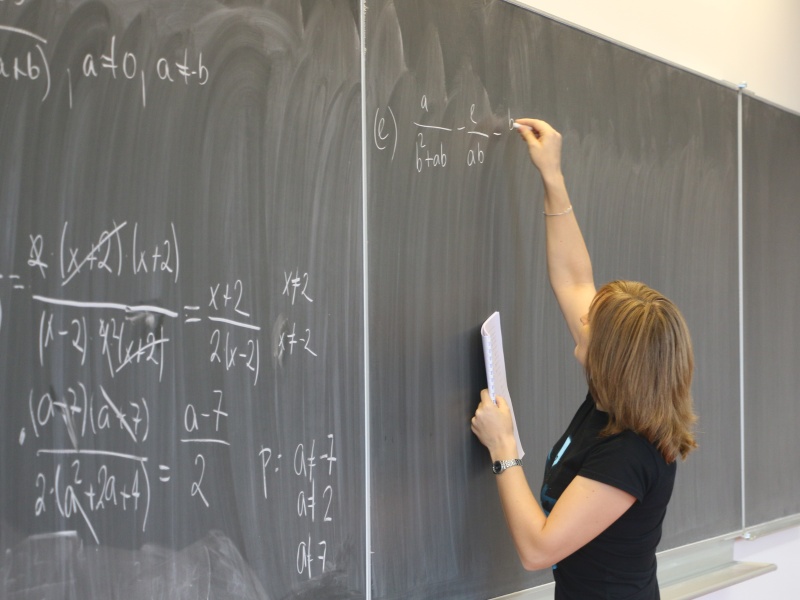 a+b) , a≠0, a≠-b
= 2·(x+2)·(x+2) / (x-2)·4·(x+2) = x+2 / 2(x-2)
x≠2
x≠-2
·(a-7)(a+7) / 2·(a²+2a+4) = a-7 / 2
p: a≠-7
a≠2
a≠7
(e) a / b²+ab - e / ab - b